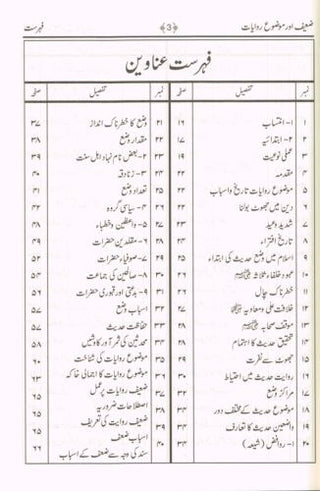 ضعیف اور موضوع روایات ﴿3﴾ فہرست
فہرست عناوین
نمبر تفصیل صفحہ
۱ ۱- انتساب ۱۶
۲ ۲- ابتدائیہ ۱۷
۳ عملی نوعیت ۱۹
۴ مقدمہ ۲۲
۵ موضوع روایات تاریخ و اسباب ۲۲
۶ دین میں جھوٹ بولنا ۲۲
۷ شدید وعید ۲۳
۸ تاریخ افتراء ۲۴
۹ اسلام میں وضع حدیث کی ابتداء ۲۵
۱۰ عہد خلفاء ثلاثہ ۲۶
۱۱ خطرناک چال
۱۲ خلافت علی و معاویہ
۱۳ موقف صحابہ
۱۴ تحقیق حدیث کا اہتمام ۲۸
۱۵ جھوٹ سے نفرت ۲۹
۱۶ روایت حدیث میں احتیاط ۳۰
۱۷ مراکز وضع ۳۲
۱۸ موضوع حدیث کے مختلف دور ۳۳
۱۹ واضعین حدیث کا تعارف ۳۴
۲۰ ۱- روافض (شیعہ) ۳۴
نمبر تفصیل صفحہ
۲۱ وضع کا خطرناک انداز ۳۷
۲۲ مقدار وضع ۳۸
۲۳ ۲- بعض نام نہاد اہل سنت ۳۹
۲۴ ۳- زنادقہ ۴۰
۲۵ تعداد وضع ۴۱
۲۶ ۴- سیاسی گروہ ۴۲
۲۷ ۵- واعظین و خطباء
۲۸ ۶- مقلدین حضرات ۴۹
۲۹ ۷- صوفیاء حضرات ۵۲
۳۰ ۸- صالحین کی جماعت ۵۴
۳۱ ۹- بدعتی اور قبوری حضرات ۵۶
۳۲ اسباب وضع ۵۷
۳۳ حفاظت حدیث ۵۷
۳۴ محدثین کی ثمر آور کاوشیں ۵۸
۳۵ موضوع روایات کی شناخت ۶۰
۳۶ موضوع روایات کا اجمالی خاکہ ۶۳
۳۷ ضعیف روایات پر عمل ۶۵
۳۸ اصطلاحات ضروریہ ۶۵
۳۹ ضعیف روایت کی تعریف ۶۵
۴۰ اسباب ضعف
سند کی وجہ سے ضعف کے اسباب ۶۶